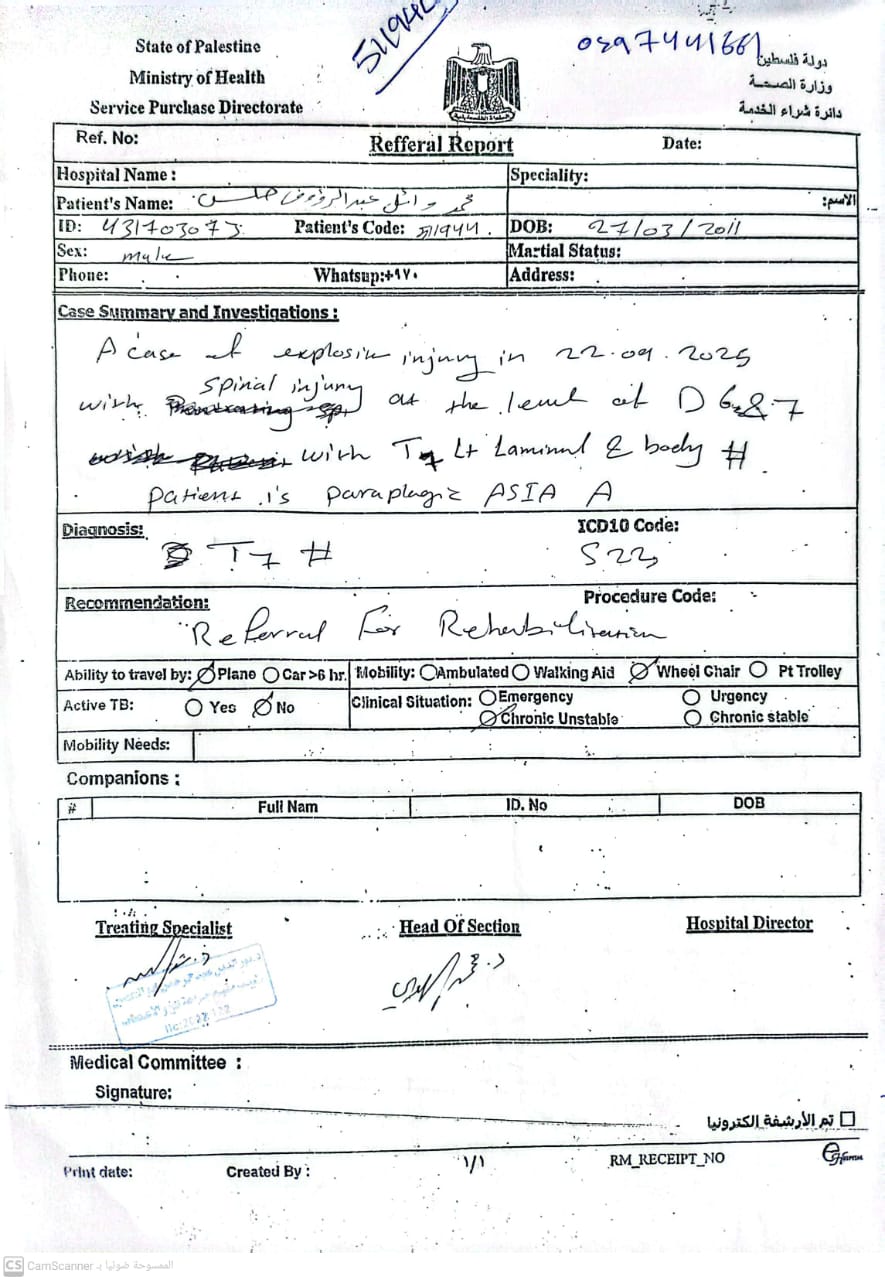 511944
0597441661
State of Palestine
Ministry of Health
Service Purchase Directorate
دولة فلسطين
وزارة الصحة
دائرة شراء الخدمة
Ref. No:
Refferal Report
Date:
Hospital Name :
Speciality:
Patient's Name: محمد وائل عبد الرؤوف حلس
الاسم:
ID: 431703073 Patient's Code: 511944.
DOB: 27/03/2011
Sex: male
Martial Status:
Phone: Whatsup:+٩٧٠
Address:
Case Summary and Investigations :
A case of explosive injury in 22.09.2025
with spinal injury at the level of D 6 & 7
with T7 Lt Laminal & body #
patient is paraplagic ASIA A
Diagnosis:
ICD10 Code:
T7 #
S22
Recommendation:
Procedure Code:
Referral For Rehabilitation
Ability to travel by: Plane Car >6 hr.
Mobility: Ambulated Walking Aid Wheel Chair Pt Trolley
Active TB: Yes No
Clinical Situation: Emergency Urgency
Chronic Unstable Chronic stable
Mobility Needs:
Companions :
# Full Nam ID. No DOB
Treating Specialist
Head Of Section
Hospital Director
Medical Committee :
Signature:
تم الأرشفة إلكترونيا
Print date:
Created By :
١/١
RM_RECEIPT_NO
CS CamScanner الممسوحة ضوئيا بـ